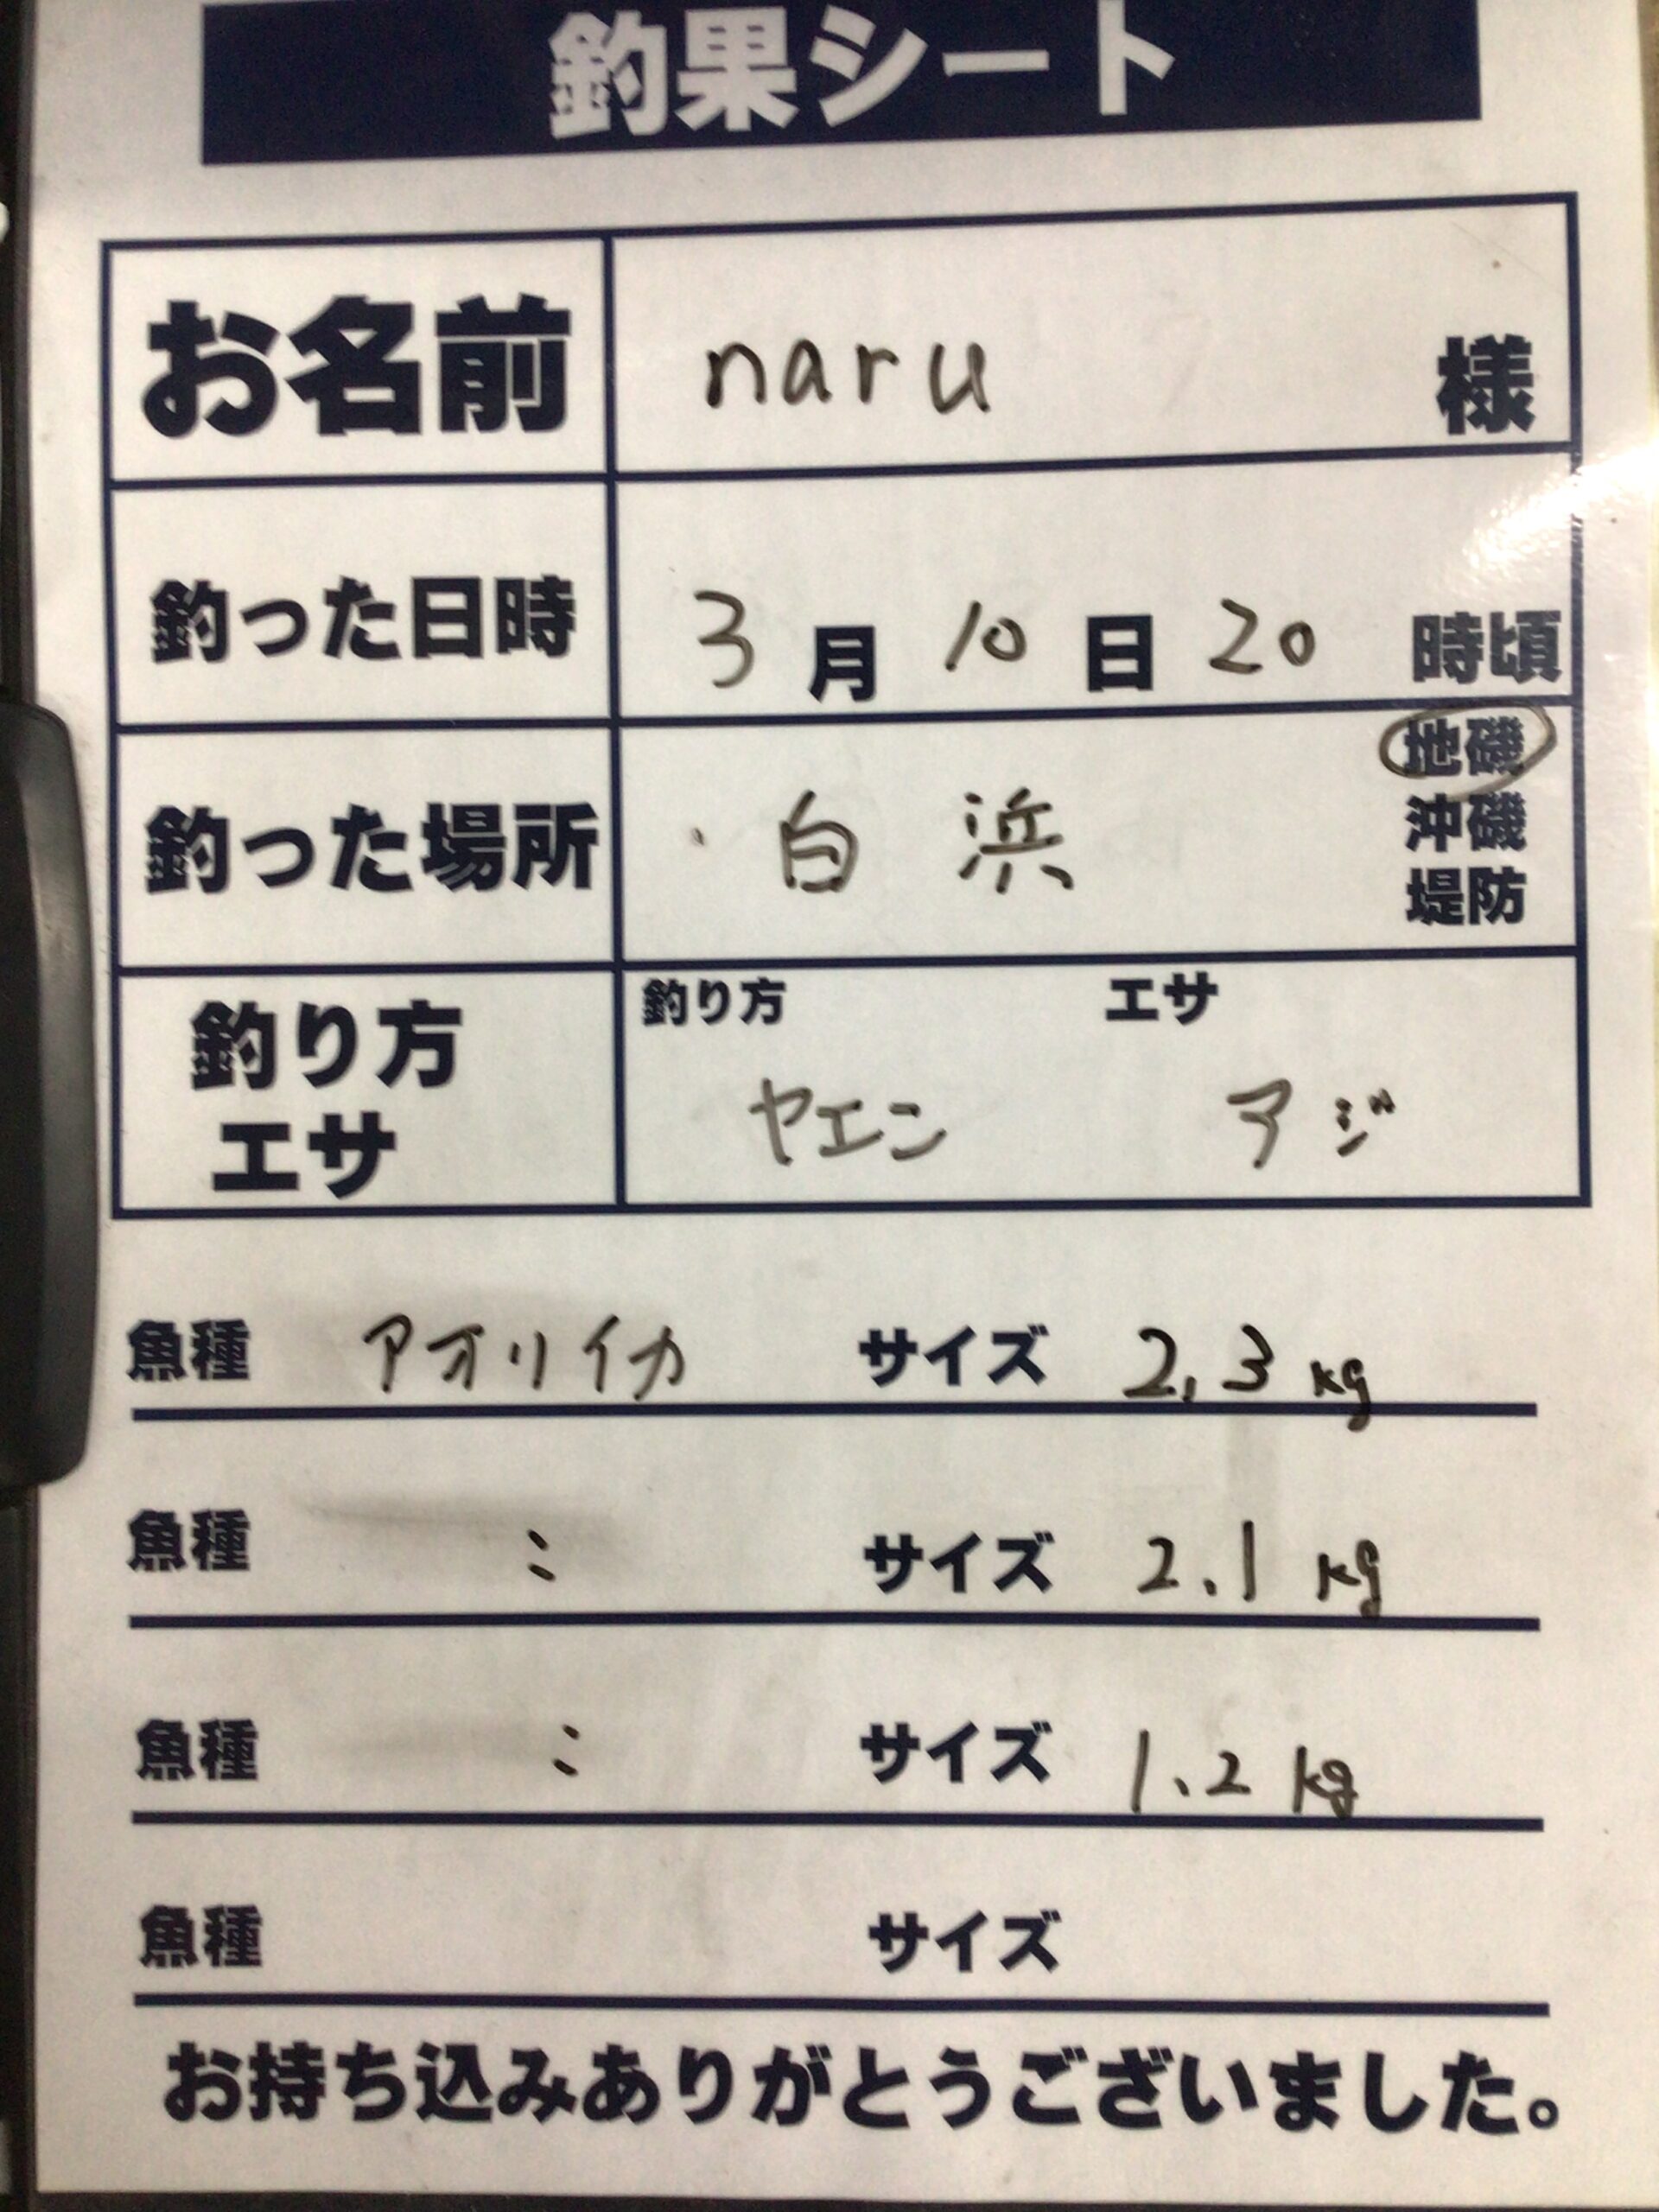 釣果シート
お名前 naru 様
釣った日時 3月10日20時頃
地磯
釣った場所 白浜 沖磯
堤防
釣り方 エサ
釣り方 ヤエン アジ
エサ
魚種 アオリイカ サイズ 2.3kg
魚種 : サイズ 2.1kg
魚種 : サイズ 1.2kg
魚種 サイズ
お持ち込みありがとうございました。